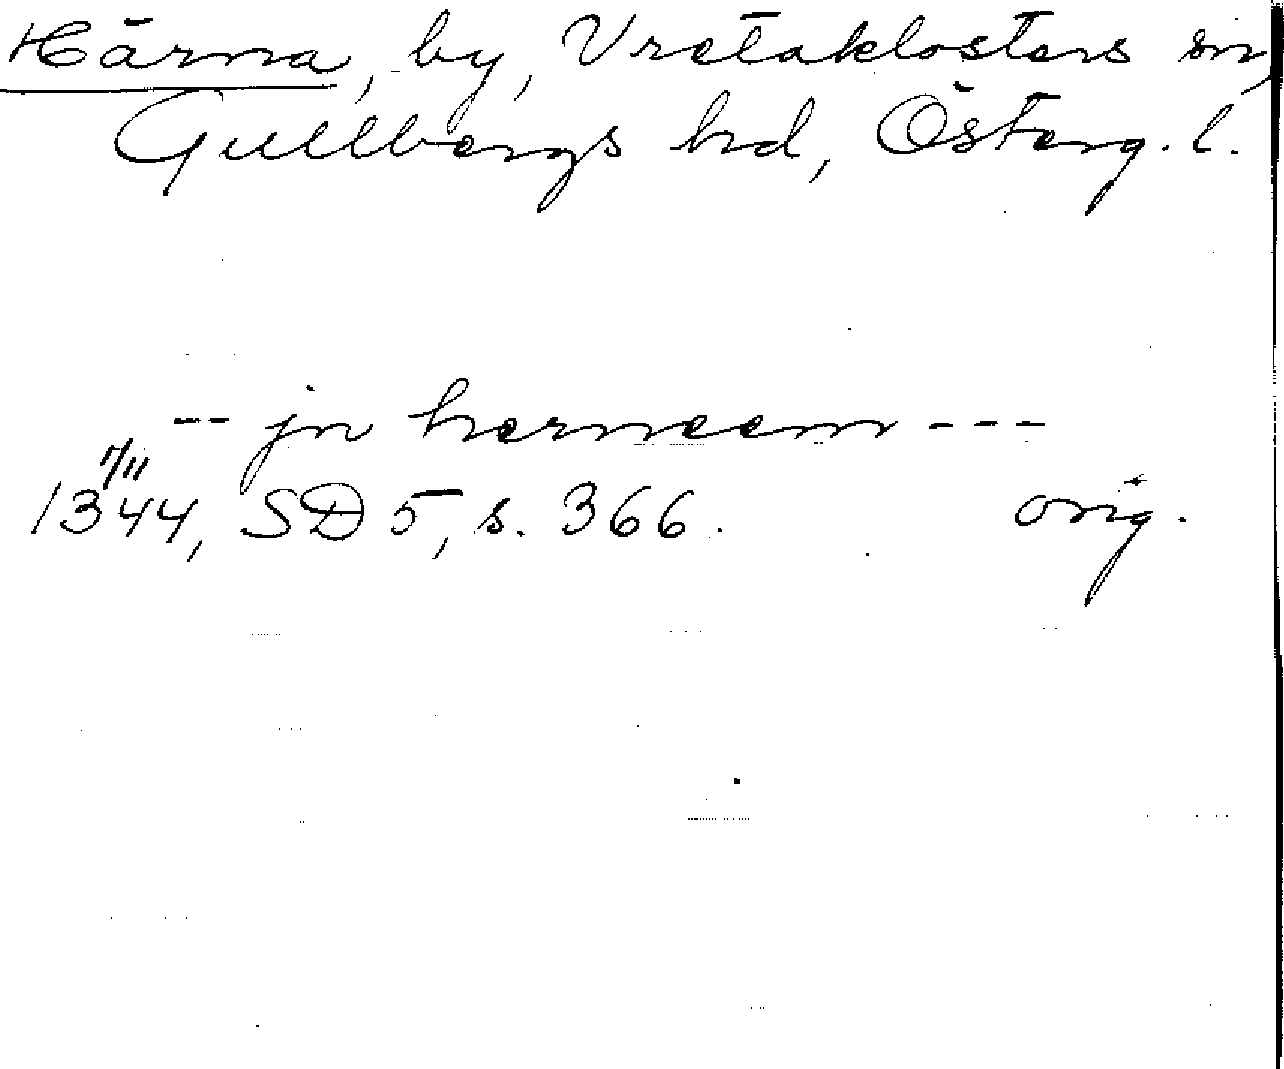 Härna, by, Vretaklosters sn,
Gullbergs hd, Österg. l.
-- jn herneem ---
1/11
1344, SD 5, s. 366. orig.